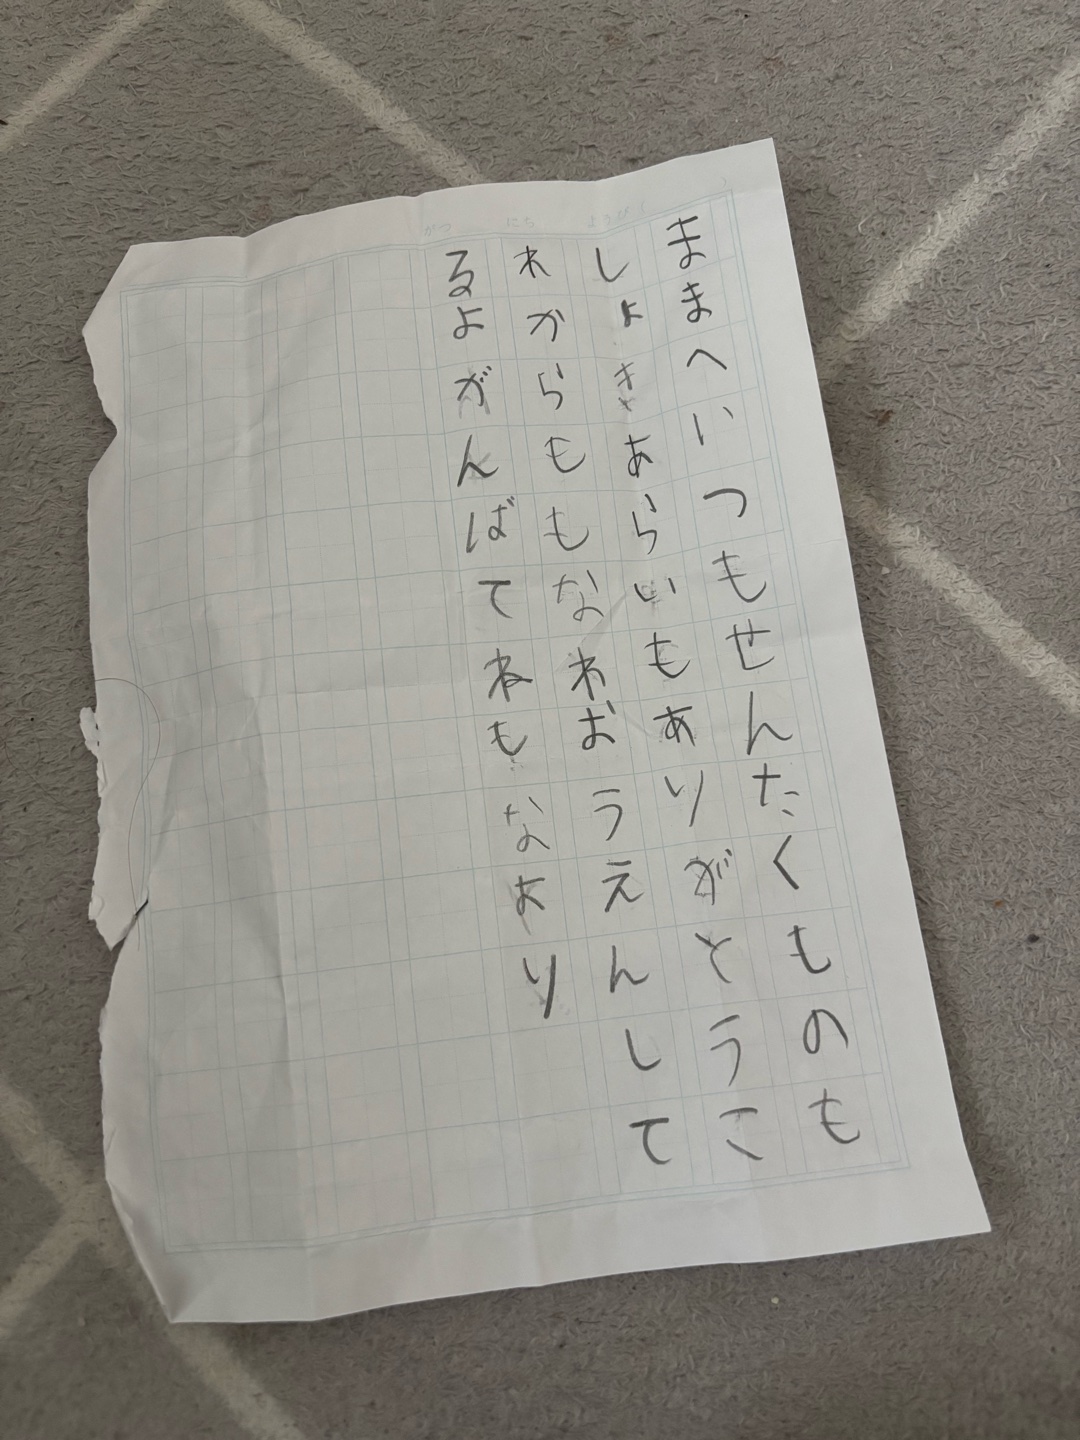 ままへいつもせんたくものも
しょきあらいもありがとうこ
れからももなわおうえんして
るよがんばてねもなより